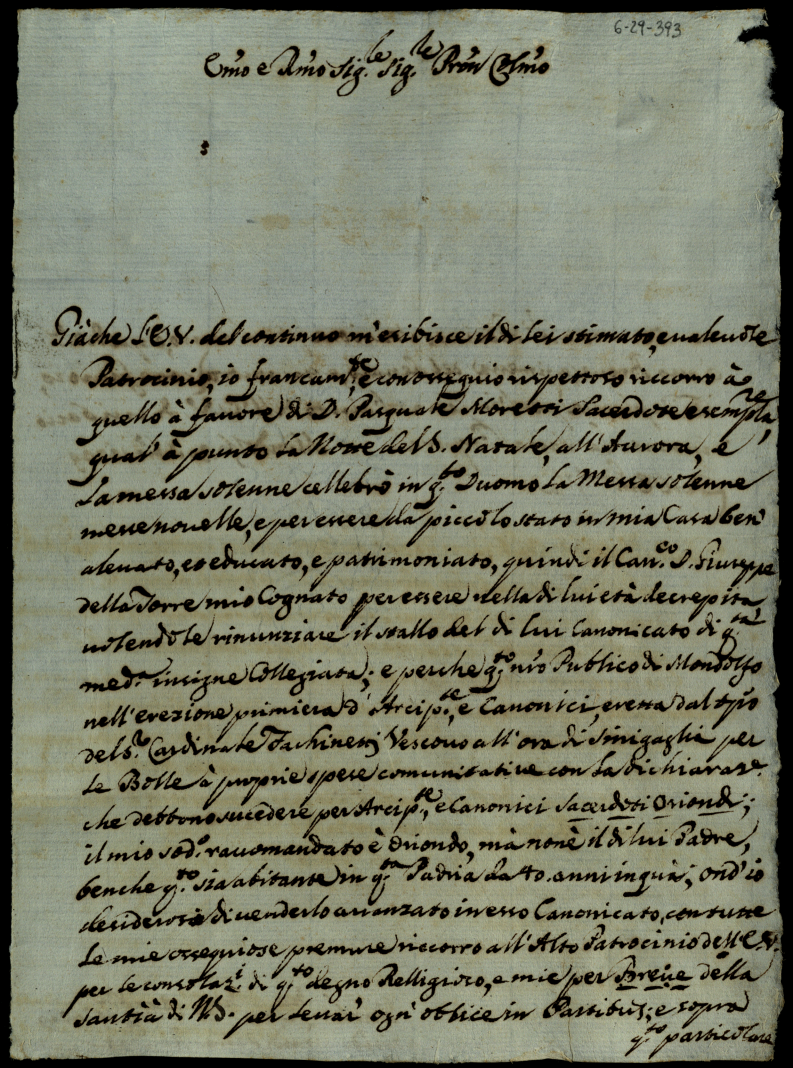 6-29-393
Emo e Rmo Sig.le Sig.le Prõn Colmo
Giàche l'E.V. del continuo m'esibisce il di lei stimato, e valeuole
Patrocinio, io francam.te e con ossequio rispettoso riccorro à
quello à fauore di D. Pasquale Moretti Sacerdote esempla.re
qual' à punto la Notte del S. Natale, all'Aurora, e
La messa solenne cellebrò in q.to Duomo La Messa solenne
messe nouelle, e per essere da piccolo stato in mia Casa ben'
aleuato, et educato, e patrimoniato, quindi il Can.co D. Giuseppe
della Torre mio Cognato per essere nella di lui età decrepita,
uolendole rinunziare il stallo del di lui Canonicato di q.ta
med.a insigne Collegiata; e perche q.to nr̃o Publico di Mondolfo
nell'erezione primiera d'Arcip.te, e Canonici, eretta dal
del S.r Cardinale Fachinetti Vescouo all'ora di Sinigaglia per
Le Bolle à proprie spese comunitatiue con la dichiaraz.e
che debbono sucedere per Arcip.te, e Canonici Sacerdoti Oriondi;
il mio sod.o raccomandato è Oriondo, mà non è il di lui Padre,
benche q.to sia abitante in q.ta Padria da 40. anni in quà; ond'io
desideroso di uederlo auanzato in esso Canonicato, con tutte
Le mie ossequiose premure riccorro all'Alto Patrocinio dell'E.V.
per le consolaz.i di q.to degno Relligioso, e mie per Breue della
Santità di N.S. per leuar' ogn'oblice in Partibus; e sopra
q.to particolare